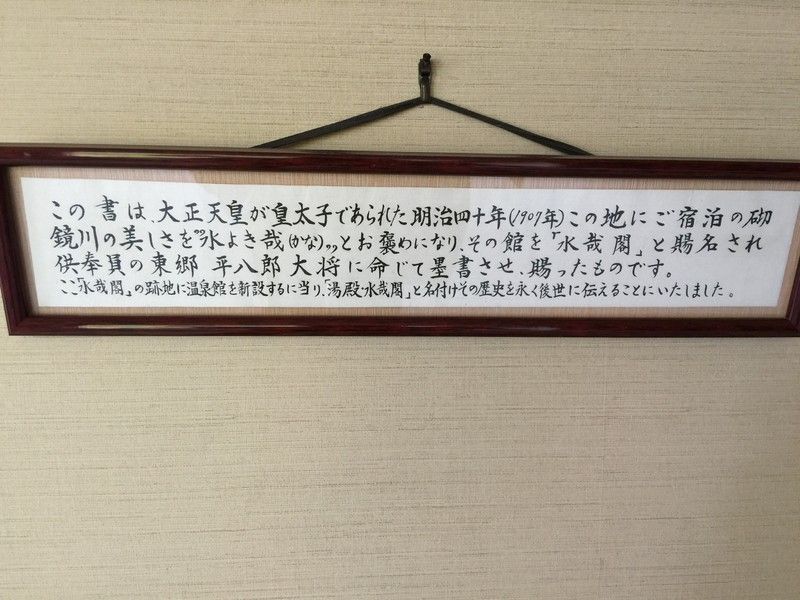 この書は、大正天皇が皇太子であられた明治四十年(1907年)この地にご宿泊の砌
鏡川の美しさを〝水よき哉(かな)〟とお褒めになり、その館を「水哉閣」と賜名され
供奉員の東郷 平八郎 大将に命じて墨書させ、賜ったものです。
ここ「水哉閣」の跡地に温泉館を新設するに当り、「湯殿・水哉閣」と名付けその歴史を永く後世に伝えることにいたしました。